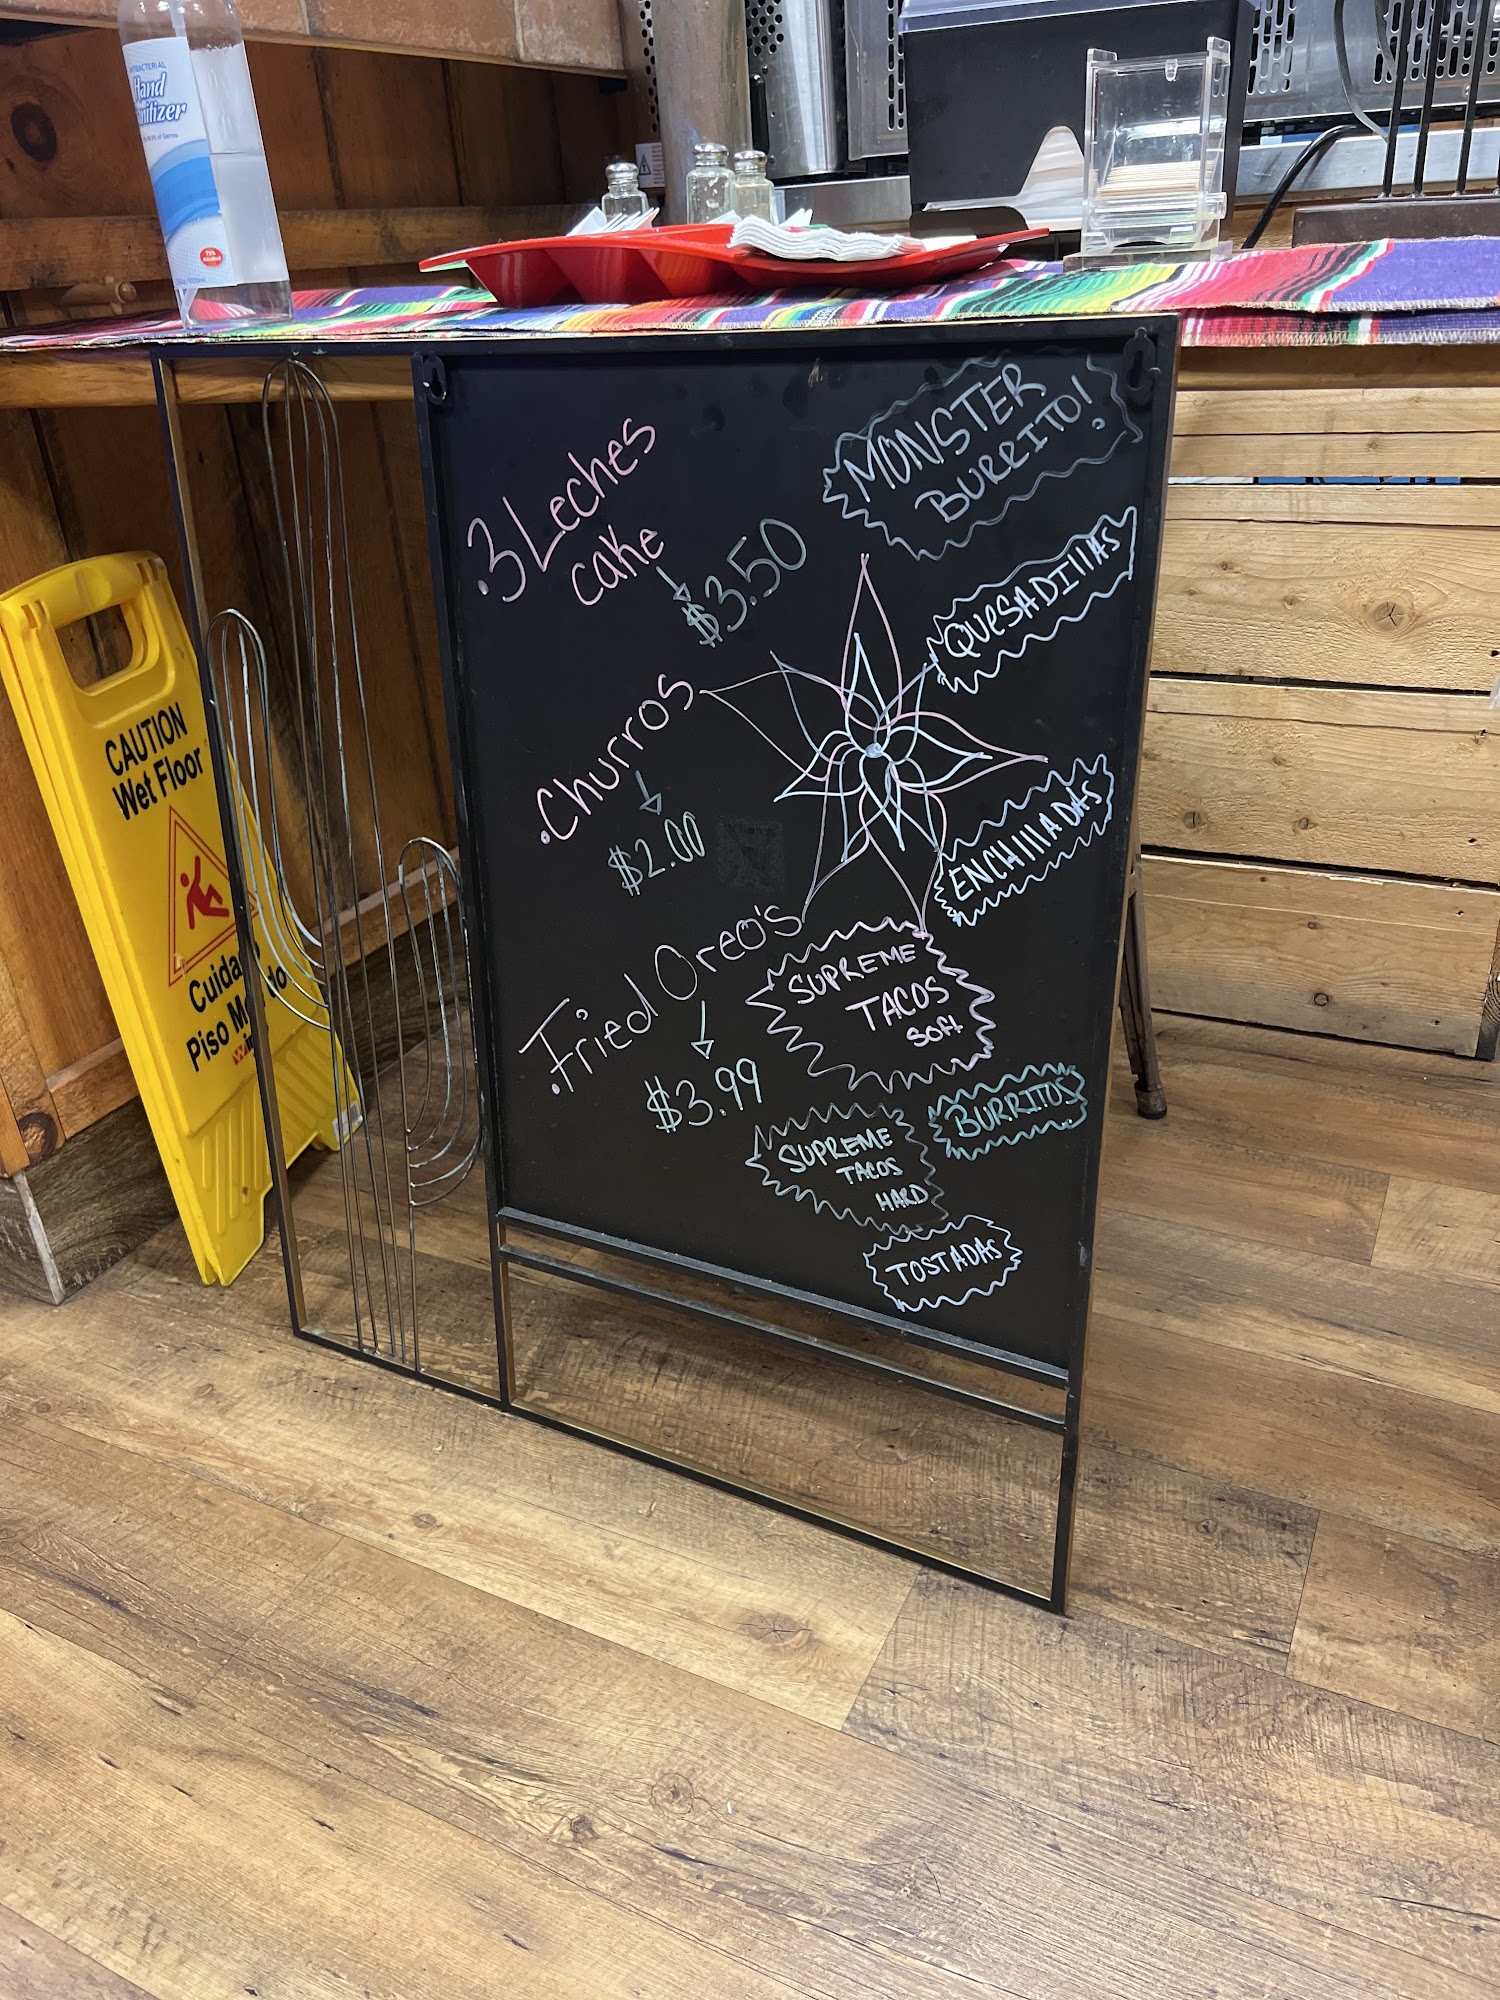 Hand
.3 Leches
cake
$3.50
.Churros
$2.00
.Fried Oreo's
$3.99
MONSTER
BURRITO!
QUESADIllAS
ENCHIllADAS
SUPREME
TACOS
SOft
BURRITOS
SUPREME
TACOS
HARD
TOSTADAS
CAUTION
Wet Floor
Piso